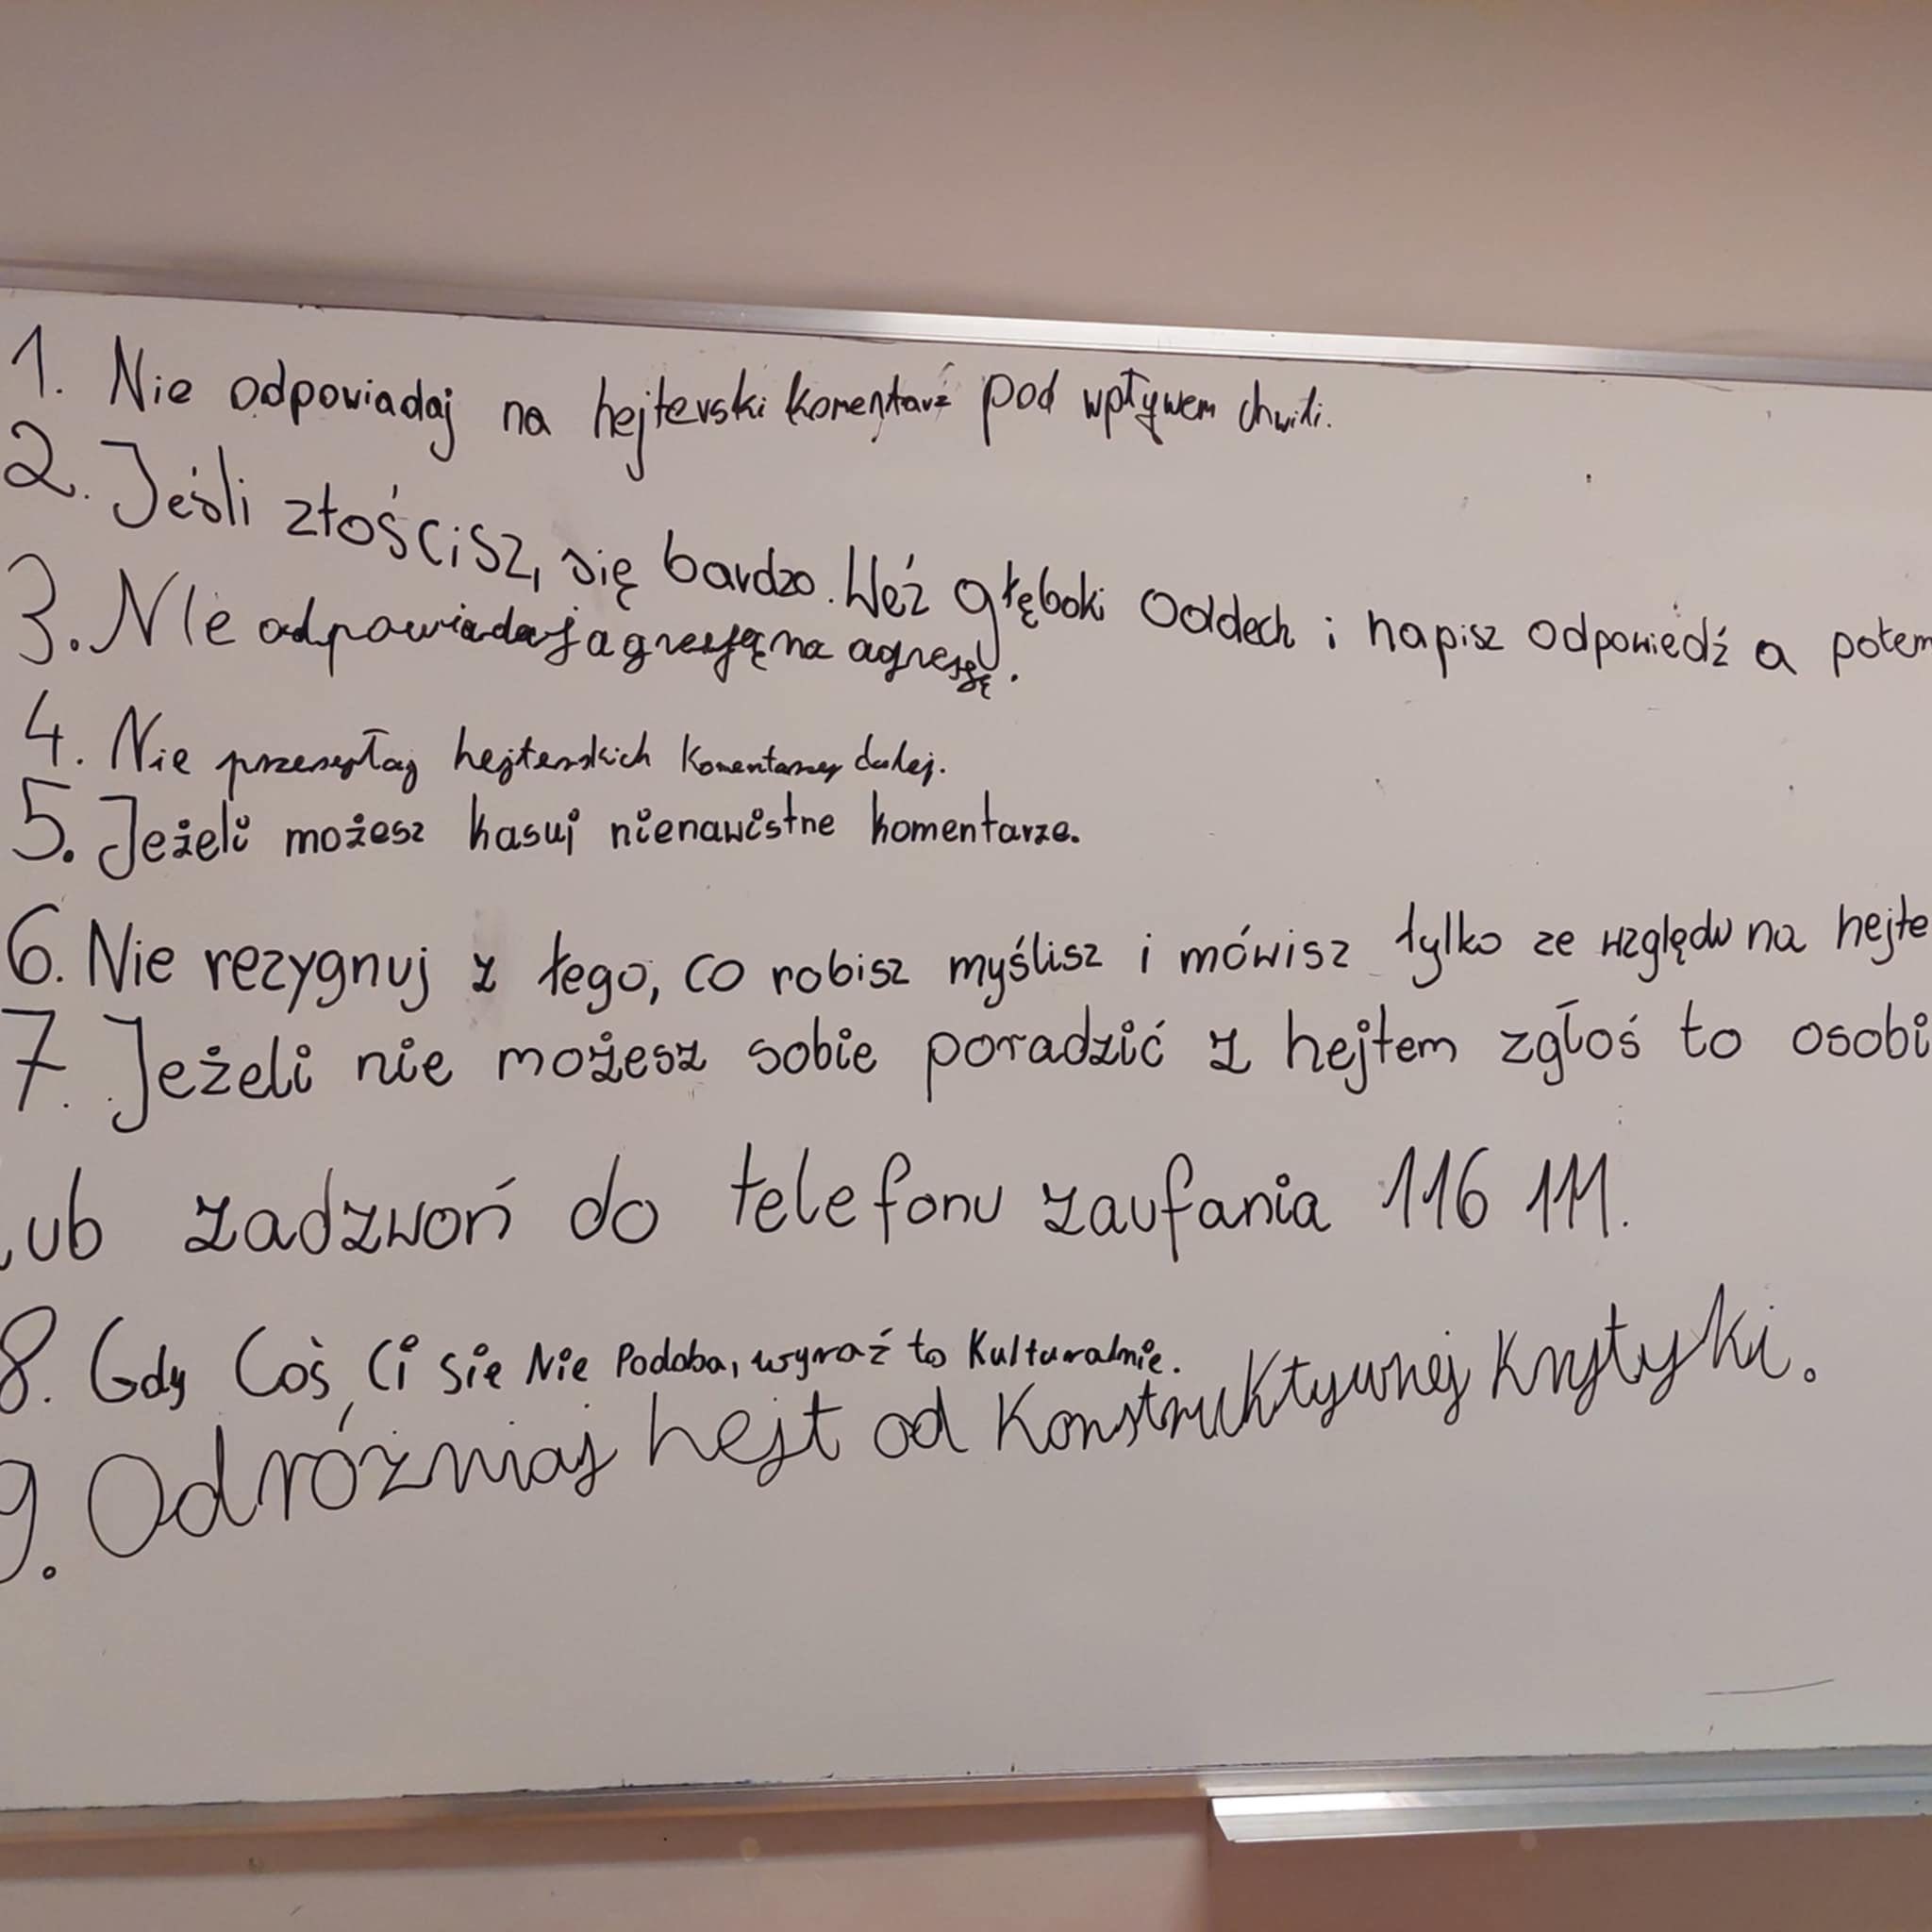 1. Nie odpowiadaj na hejterski komentarz pod wpływem chwili.
2. Jeśli złościsz, się bardzo. Weź głęboki oddech i napisz odpowiedź a potem
3. Nie odpowiadaj agresją na agresję.
4. Nie przesyłaj hejterskich komentarzy dalej.
5. Jeżeli możesz kasuj nienawistne komentarze.
6. Nie rezygnuj z tego, co robisz myślisz i mówisz tylko ze względu na hejte
7. Jeżeli nie możesz sobie poradzić z hejtem zgłoś to osobi
lub zadzwoń do telefonu zaufania 116 111.
8. Gdy Coś, Ci sie Nie Podoba, wyraź to Kulturalnie.
9. Odróżniaj hejt od Konstruktywnej Krytyki.